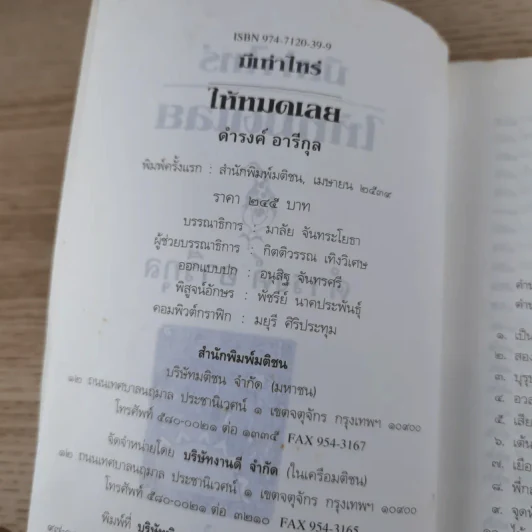 ISBN 974-7120-39-9
มีเท่าไหร่
ให้หมดเลย
ดำรงค์ อารีกุล
พิมพ์ครั้งแรก : สำนักพิมพ์มติชน, เมษายน ๒๕๓๙
ราคา ๒๔๕ บาท
บรรณาธิการ : มาลัย จันทระโยธา
ผู้ช่วยบรรณาธิการ : กิตติวรรณ เทิงวิเศษ
ออกแบบปก : อนุสิฐ จันทรศรี
พิสูจน์อักษร : พัชรีย์ นาคประพันธุ์
คอมพิวต์กราฟิก : มยุรี ศิริประทุม
สำนักพิมพ์มติชน
บริษัทมติชน จำกัด (มหาชน)
๑๒ ถนนเทศบาลนฤมาล ประชานิเวศน์ ๑ เขตจตุจักร กรุงเทพฯ ๑๐๙๐๐
โทรศัพท์ ๕๘๐-๐๐๒๑ ต่อ ๑๓๓๕ FAX 954-3167
จัดจำหน่ายโดย บริษัทงานดี จำกัด (ในเครือมติชน)
๑๒ ถนนเทศบาลนฤมาล ประชานิเวศน์ ๑ เขตจตุจักร กรุงเทพฯ ๑๐๙๐๐
โทรศัพท์ ๕๘๐-๐๐๒๑ ต่อ ๓๒๑๐ FAX 954-3165
พิมพ์ที่
๑. เป็น
๒. สอง
๓.
๔.
๕. เสีย
๖. เต้น
๗.
๘.
๙.